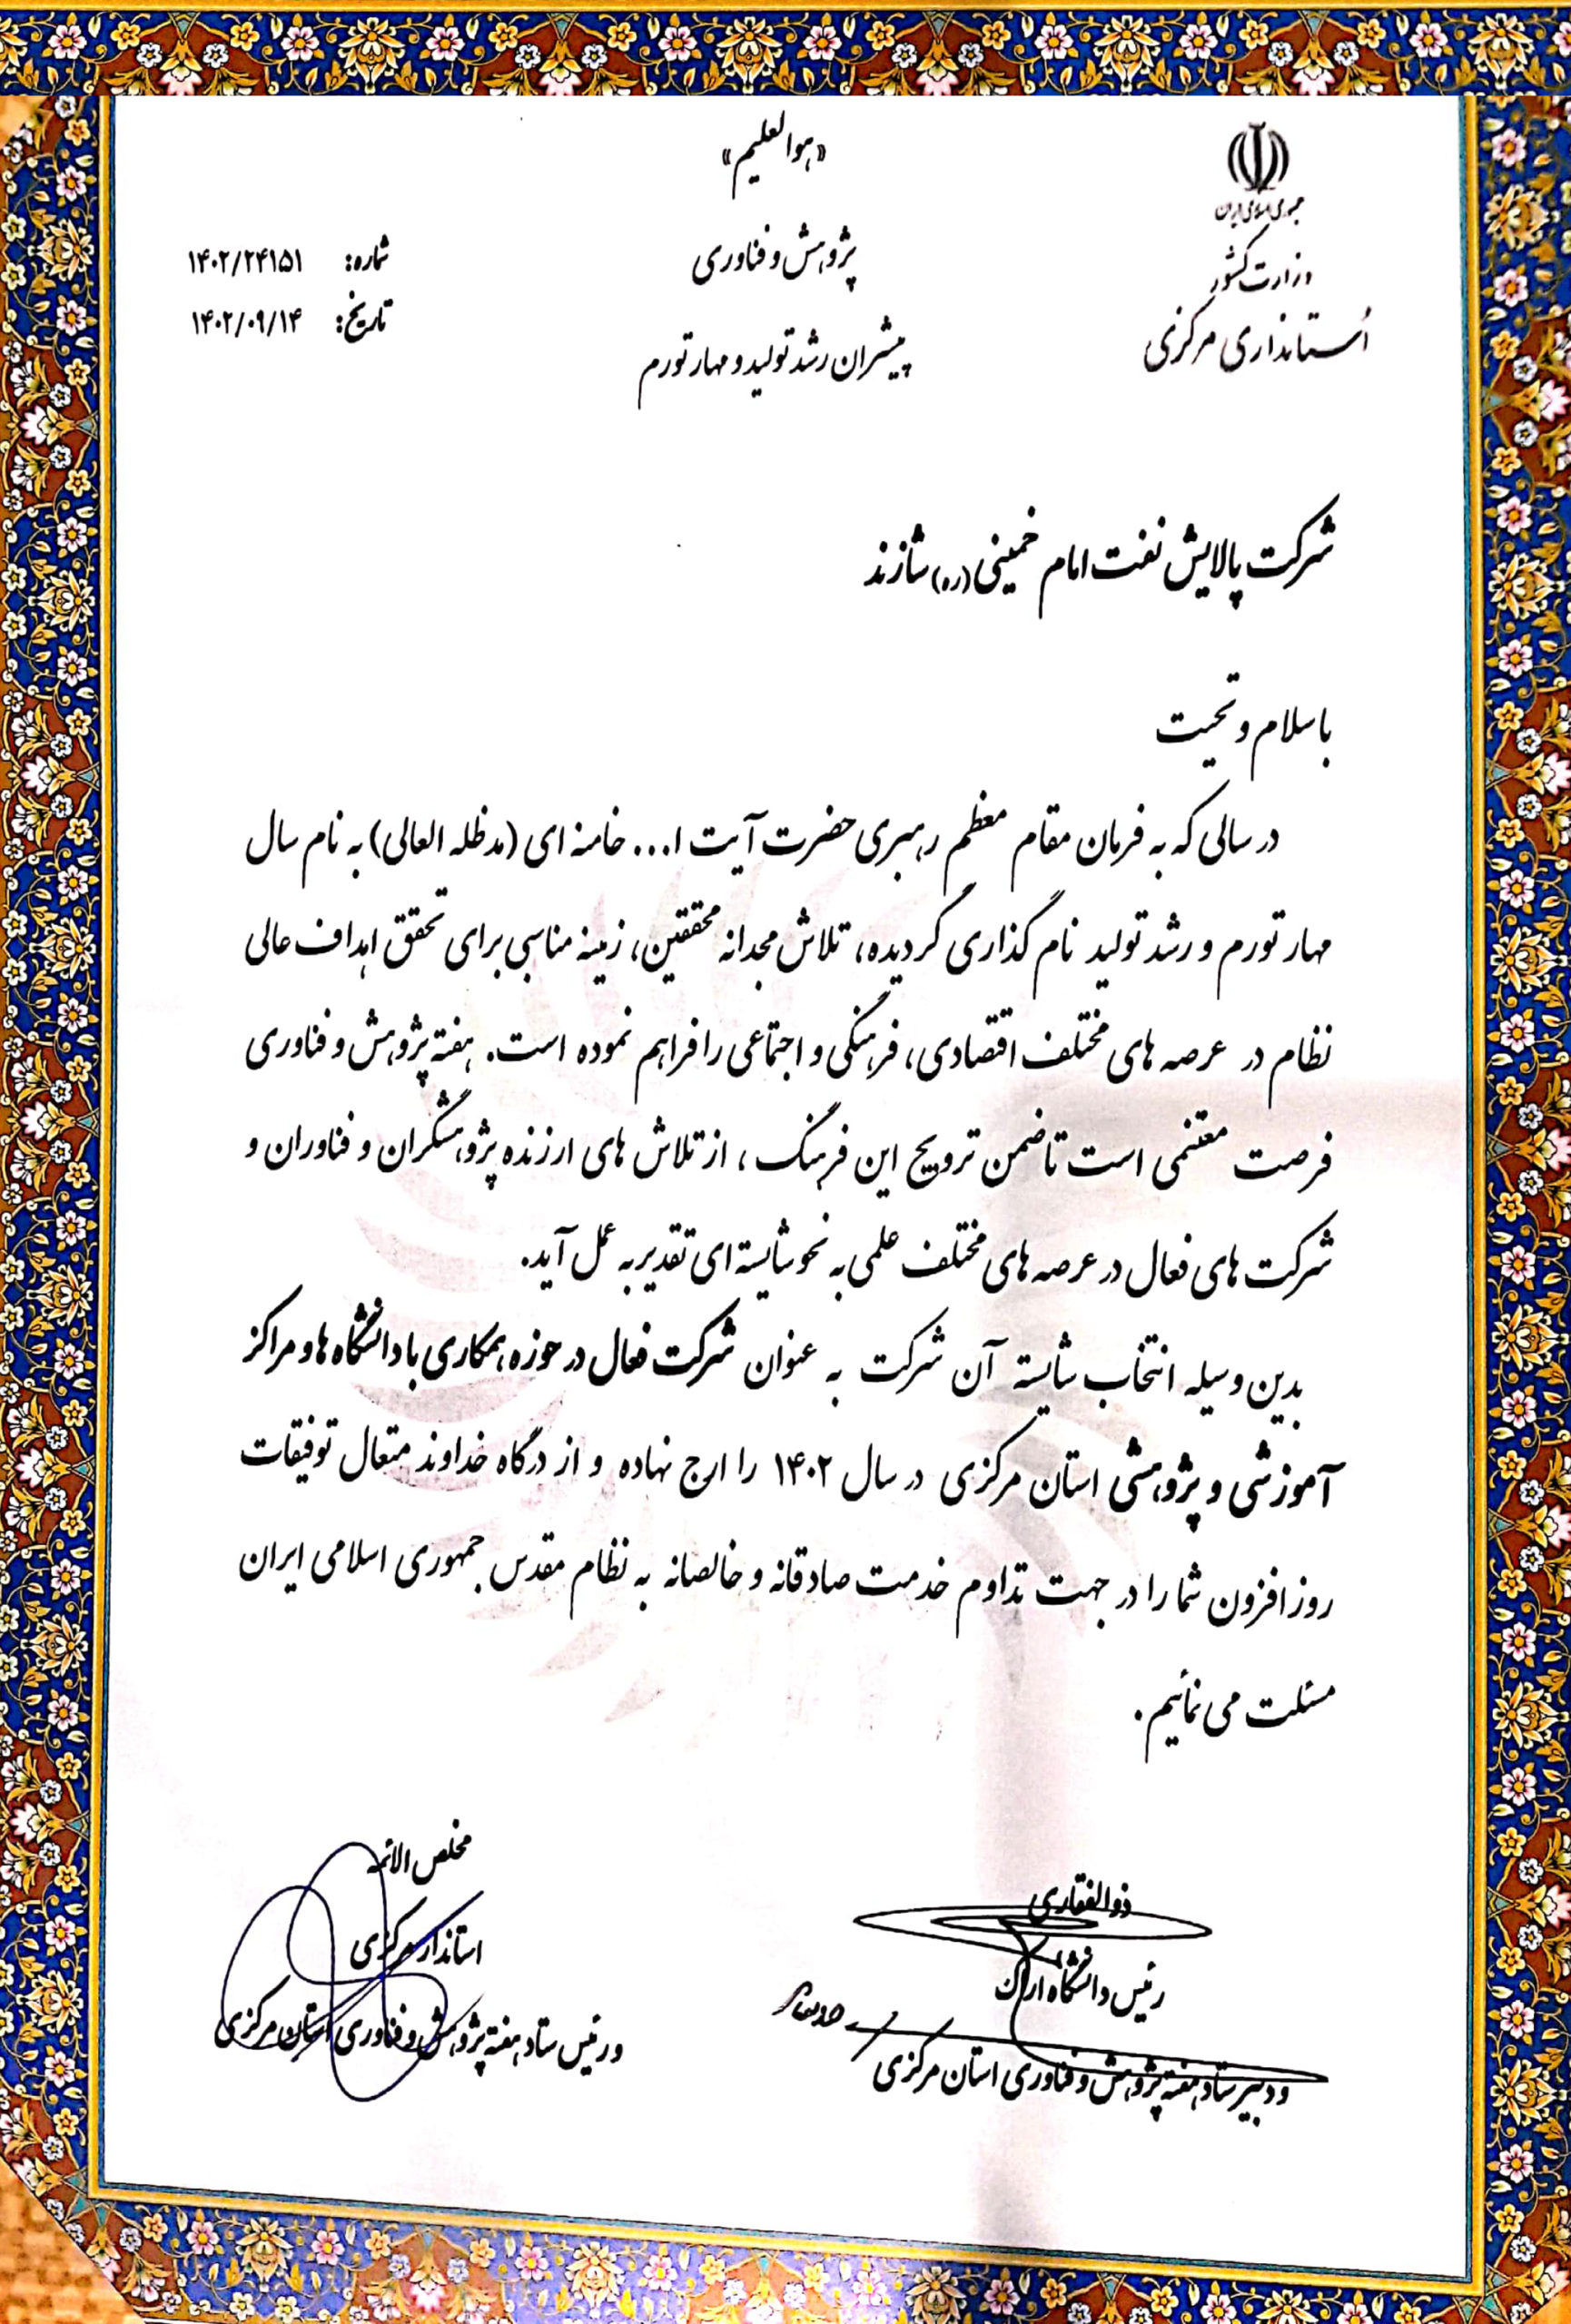 «هوالعلیم»
جمهوری اسلامی ایران
وزارت کشور
استانداری مرکزی
پژوهش و فناوری
پیشران رشد تولید و مهار تورم
شماره: ۱۴۰۲/۲۴۱۵۱
تاریخ: ۱۴۰۲/۰۹/۱۴
شرکت پالایش نفت امام خمینی (ره) شازند
با سلام و تحیت
در سالی که به فرمان مقام معظم رهبری حضرت آیت ا... خامنه ای (مدظله العالی) به نام سال
مهار تورم و رشد تولید نام گذاری گردیده، تلاش مجدانه محققین، زمینه مناسبی برای تحقق اهداف عالی
نظام در عرصه های مختلف اقتصادی، فرهنگی و اجتماعی را فراهم نموده است. هفته پژوهش و فناوری
فرصت مغتنمی است تا ضمن ترویج این فرهنگ، از تلاش های ارزنده پژوهشگران و فناوران و
شرکت های فعال در عرصه های مختلف علمی به نحو شایسته ای تقدیر به عمل آید.
بدین وسیله انتخاب شایسته آن شرکت به عنوان شرکت فعال در حوزه همکاری با دانشگاه ها و مراکز
آموزشی و پژوهشی استان مرکزی در سال ۱۴۰۲ را ارج نهاده و از درگاه خداوند متعال توفیقات
روز افزون شما را در جهت تداوم خدمت صادقانه و خالصانه به نظام مقدس جمهوری اسلامی ایران
مسئلت می نمائیم.
ذوالفقاری
رئیس دانشگاه اراک
و دبیر ستاد هفته پژوهش و فناوری استان مرکزی
مخلص الائمه
استاندار مرکزی
و رئیس ستاد هفته پژوهش و فناوری استان مرکزی